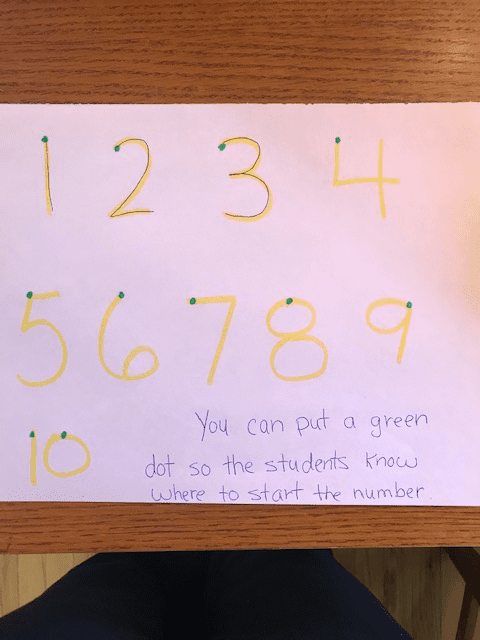 1 2 3 4
5 6 7 8 9
10
You can put a green
dot so the students know
where to start the number.